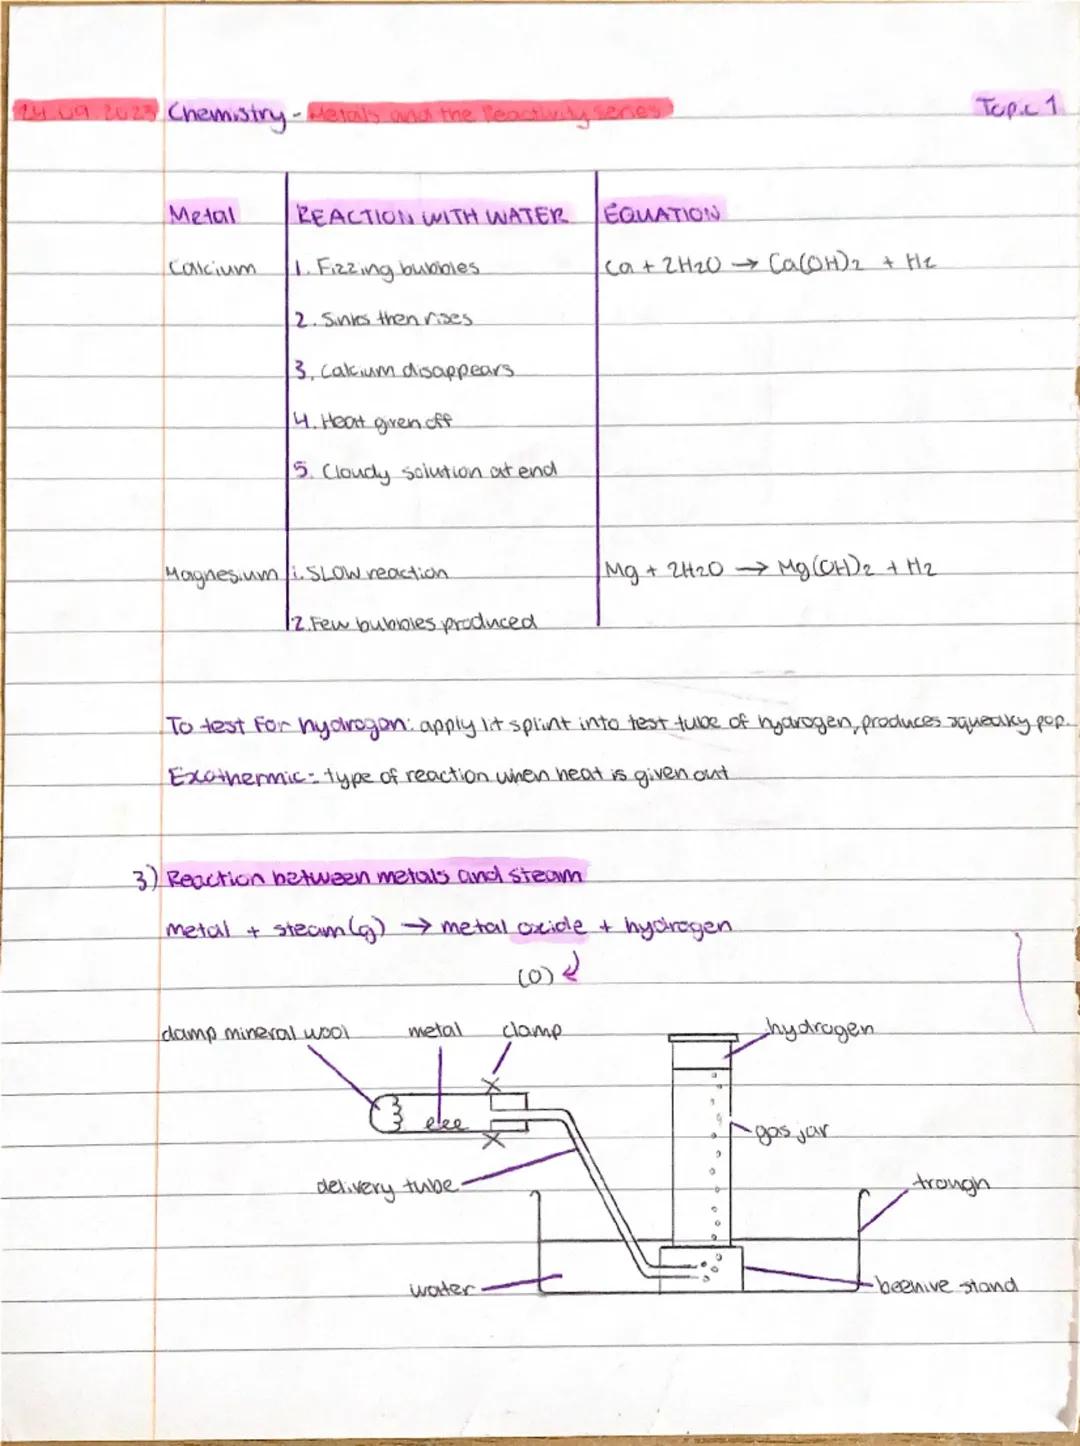 24.09.2023 Chemistry - Metals and the Reactivity Series Topic 1
Metal REACTION WITH WATER EQUATION
Calcium 1. Fizzing bubbles Ca + 2H2O → Ca(OH)2 + H2
2. Sinks then rises
3. Calcium disappears
4. Heat given off
5. Cloudy solution at end
Magnesium 1. SLOW reaction Mg + 2H2O → Mg(OH)2 + H2
2. Few bubbles produced
To test for hydrogen: apply lit splint into test tube of hydrogen, produces squeaky pop.
Exothermic: type of reaction when heat is given out
3) Reaction between metals and steam
metal + steam(g) → metal oxide + hydrogen
(O)
damp mineral wool metal clamp hydrogen
gas jar
delivery tube trough
water beehive stand